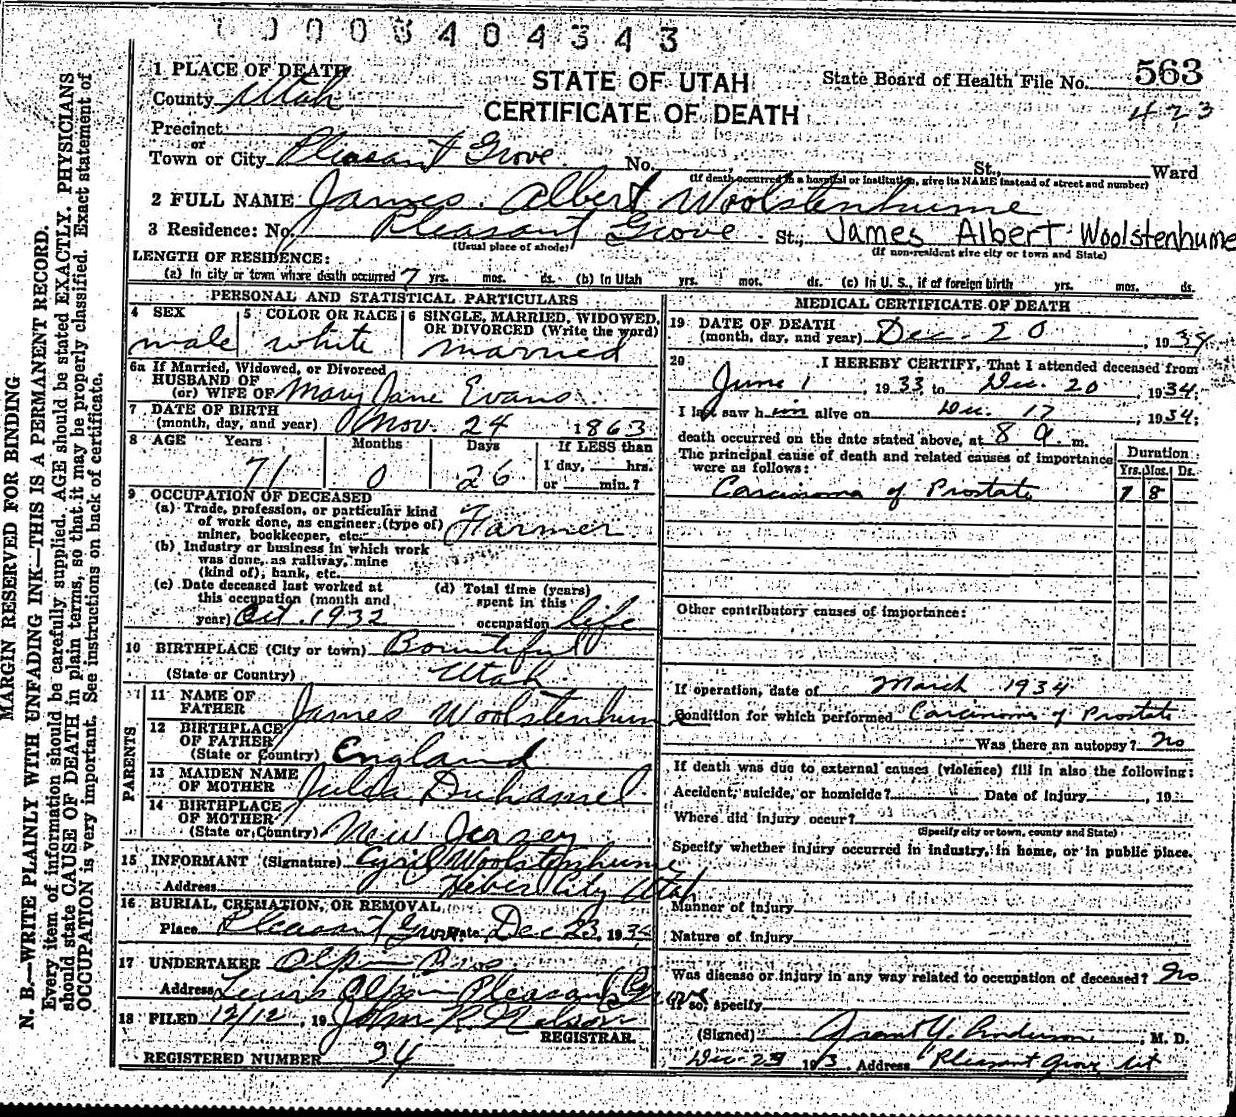 0000404343
1 PLACE OF DEATH
County Utah
STATE OF UTAH
CERTIFICATE OF DEATH
State Board of Health File No. 563
423
Precinct
or
Town or City Pleasant Grove. No. St., Ward
(If death occurred in a hospital or institution, give its NAME instead of street and number)
2 FULL NAME James. Albert Woolstenhume
3 Residence: No. Pleasant Grove. St., James Albert Woolstenhume
(Usual place of abode) (If non-resident give city or town and State)
LENGTH OF RESIDENCE:
(a) In city or town where death occurred 7 yrs. mos. ds. (b) In Utah yrs. mot. ds. (c) In U. S., if of foreign birth yrs. mos. ds.
PERSONAL AND STATISTICAL PARTICULARS
4 SEX
male
5 COLOR OR RACE
white
6 SINGLE, MARRIED, WIDOWED, OR DIVORCED (Write the word)
married
6a If Married, Widowed, or Divorced
HUSBAND OF
(or) WIFE OF Mary Jane Evans.
7 DATE OF BIRTH
(month, day, and year) Nov. 24 1863
8 AGE Years Months Days If LESS than
71 0 26 1 day, hrs.
or min.?
9 OCCUPATION OF DECEASED
(a) Trade, profession, or particular kind
of work done, as engineer (type of)
miner, bookkeeper, etc. Farmer.
(b) Industry or business in which work
was done, as railway, mine
(kind of), bank, etc.
(c) Date deceased last worked at
this occupation (month and
year) Oct. 1932
(d) Total time (years)
spent in this
occupation life
10 BIRTHPLACE (City or town) Bountiful
(State or Country) Utah
PARENTS
11 NAME OF
FATHER James Woolstenhume
12 BIRTHPLACE
OF FATHER
(State or Country) England
13 MAIDEN NAME
OF MOTHER Julda Duhamel
14 BIRTHPLACE
OF MOTHER
(State or Country) New Jersey
15 INFORMANT (Signature) Cyril Woolstenhume
Address Heber City Utah
16 BURIAL, CREMATION, OR REMOVAL
Place Pleasant Grove Date Dec 23, 1934
17 UNDERTAKER Olpin Bros
Address Lewis Olpin Pleasant Grove
18 FILED 12/12, 19 John R. Nelson
REGISTRAR.
REGISTERED NUMBER 34
MEDICAL CERTIFICATE OF DEATH
19 DATE OF DEATH
(month, day, and year) Dec. 20, 1934
20 I HEREBY CERTIFY, That I attended deceased from
June 1, 1933 to Dec. 20 1934;
I last saw him alive on Dec. 17, 1934;
death occurred on the date stated above, at 8 a. m.
The principal cause of death and related causes of importance
were as follows:
Duration
Yrs. Mos. Ds.
Carcinoma of Prostate 1 8
Other contributory causes of importance:
If operation, date of March 1934
Condition for which performed Carcinoma of Prostate
Was there an autopsy? no
If death was due to external causes (violence) fill in also the following:
Accident, suicide, or homicide? Date of injury, 19
Where did injury occur?
(Specify city or town, county and State)
Specify whether injury occurred in industry, in home, or in public place.
Manner of injury
Nature of injury
Was disease or injury in any way related to occupation of deceased? no
If so, specify
(Signed) Grant Y. Anderson, M. D.
Dec 23 193 . Address Pleasant Grove, Ut
MARGIN RESERVED FOR BINDING
N. B.—WRITE PLAINLY WITH UNFADING INK—THIS IS A PERMANENT RECORD.
Every item of information should be carefully supplied. AGE should be stated EXACTLY. PHYSICIANS
should state CAUSE OF DEATH in plain terms, so that it may be properly classified. Exact statement of
OCCUPATION is very important. See instructions on back of certificate.